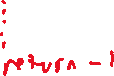 return -1